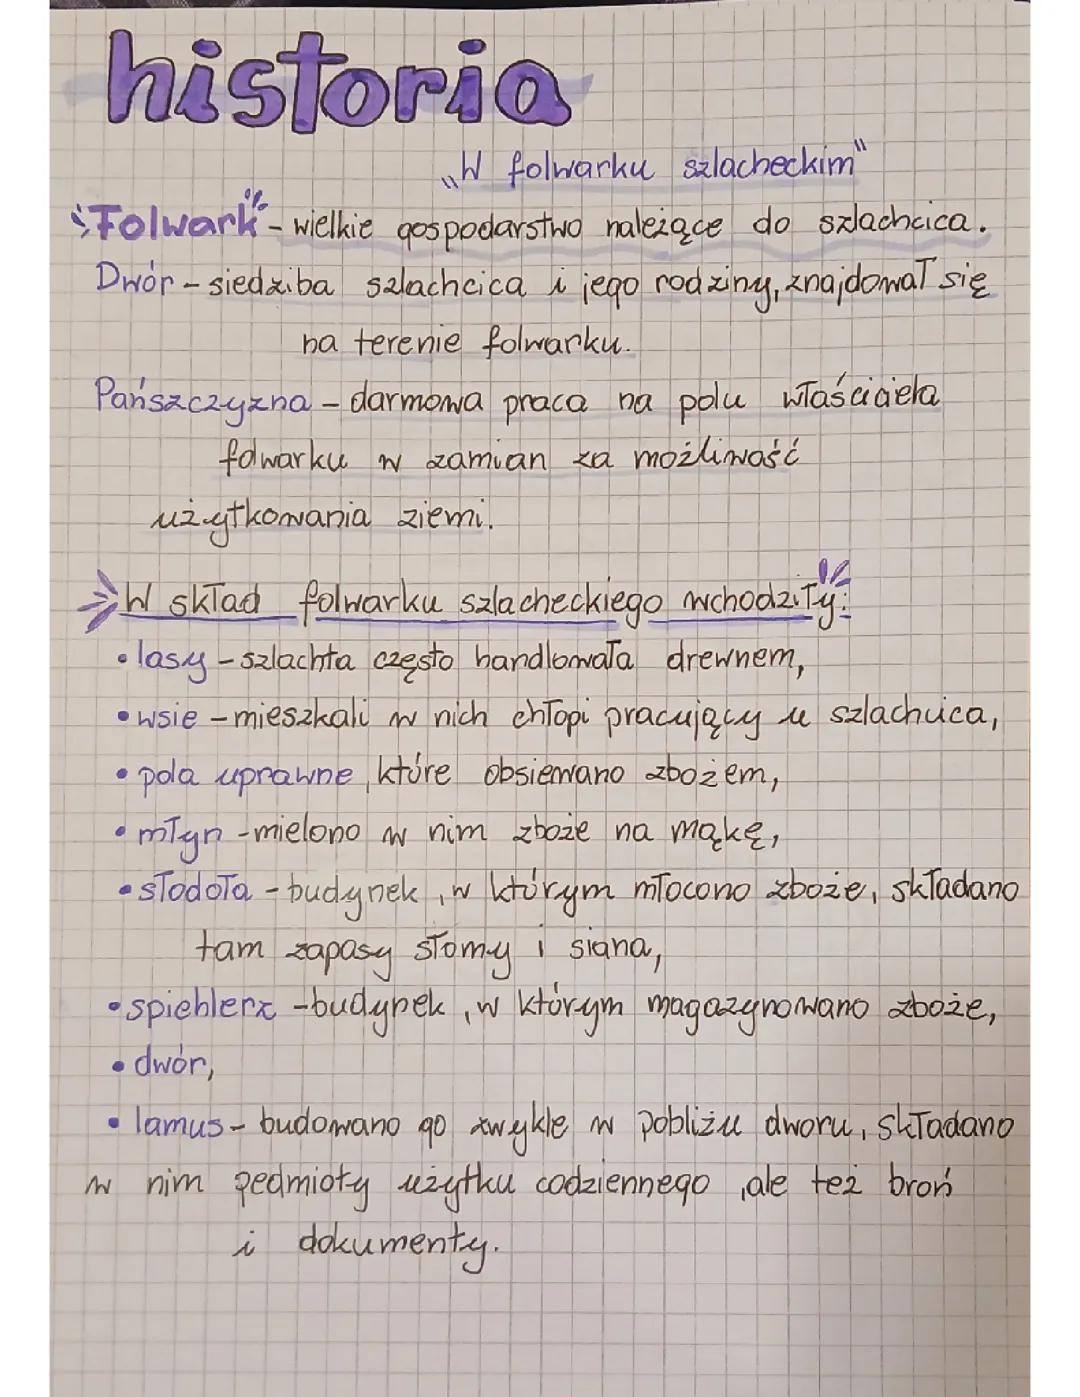 historia
„W folwarku szlacheckim"
Folwark - wielkie gospodarstwo należące do szlachcica.
Dwór - siedziba szlachcica i jego rodziny, znajdował się
na terenie folwarku.
Pańszczyzna - darmowa praca na polu właściciela
folwarku w zamian za możliwość
użytkowania ziemi.
W skład folwarku szlacheckiego wchodziły:
• lasy - szlachta często handlowała drewnem,
• wsie - mieszkali w nich chłopi pracujący u szlachcica,
• pola uprawne, które obsiewano zbożem,
• młyn - mielono w nim zboże na mąkę,
• stodoła - budynek, w którym młocono zboże, składano
tam zapasy słomy i siana,
• spichlerz - budynek, w którym magazynowano zboże,
• dwór,
• lamus - budowano go zwykle w pobliżu dworu, składano
w nim pedmioty użytku codziennego, ale też broń
i dokumenty.